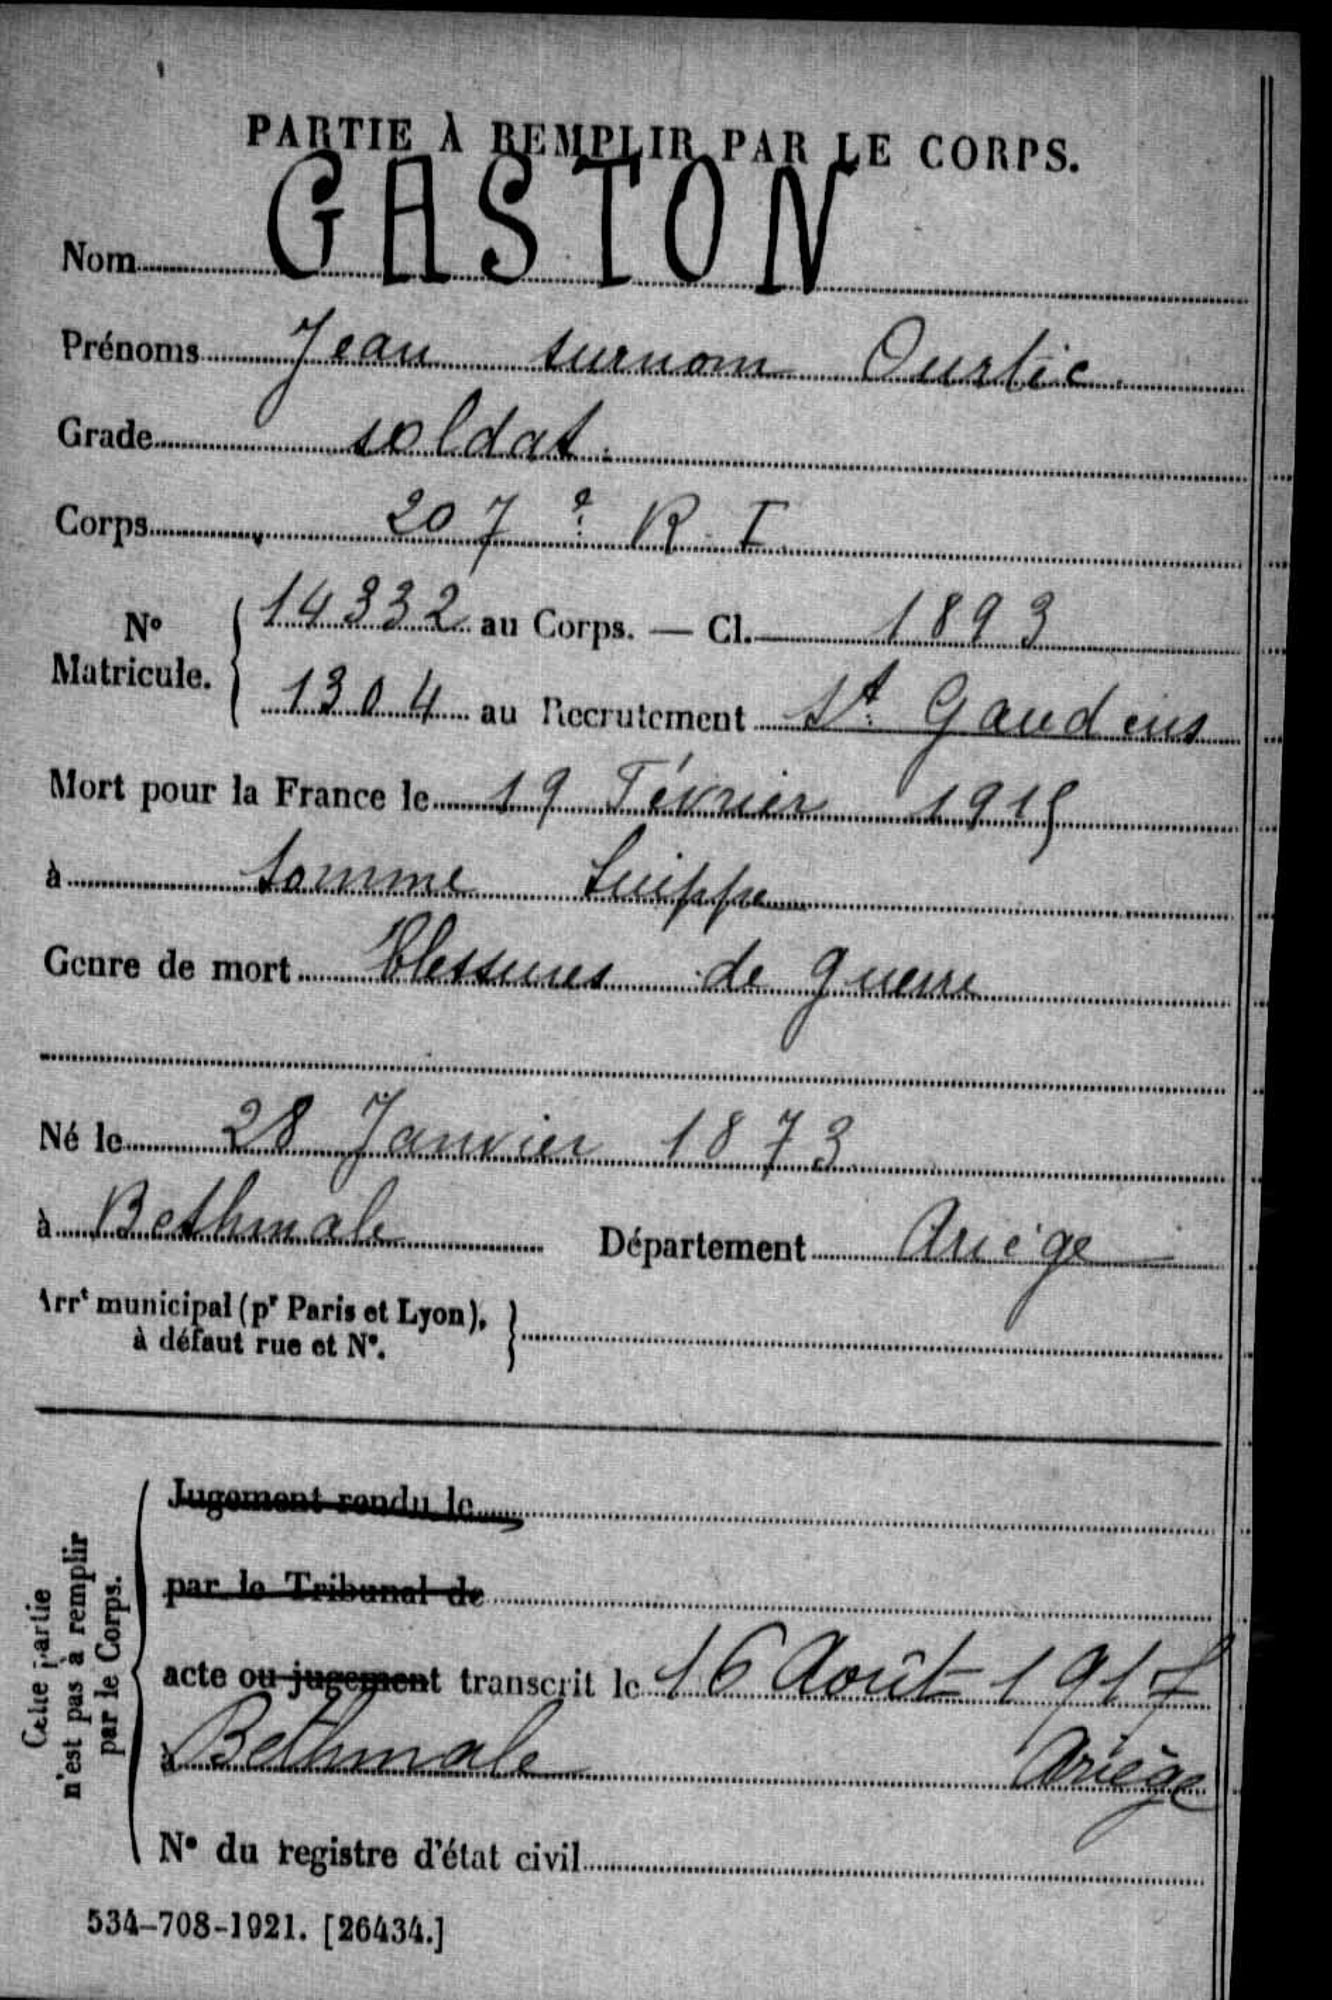 PARTIE À REMPLIR PAR LE CORPS.
Nom GASTON
Prénoms Jean surnom Ourtic.
Grade soldat.
Corps 207e R. I.
No Matricule. { 14332 au Corps. — Cl. 1893
1304 au Recrutement St. Gaudens
Mort pour la France le 19 Février 1915
à Somme Suippe
Genre de mort Blessures de guerre
Né le 28 Janvier 1873
à Bethmale Département Ariège
Arrt municipal (pr Paris et Lyon), }
à défaut rue et No.
Cette partie
n'est pas à remplir
par le Corps.
Jugement rendu le
par le Tribunal de
acte ou jugement transcrit le 16 Août 1917
à Bethmale Ariège
No du registre d'état civil
534-708-1921. [26434.]